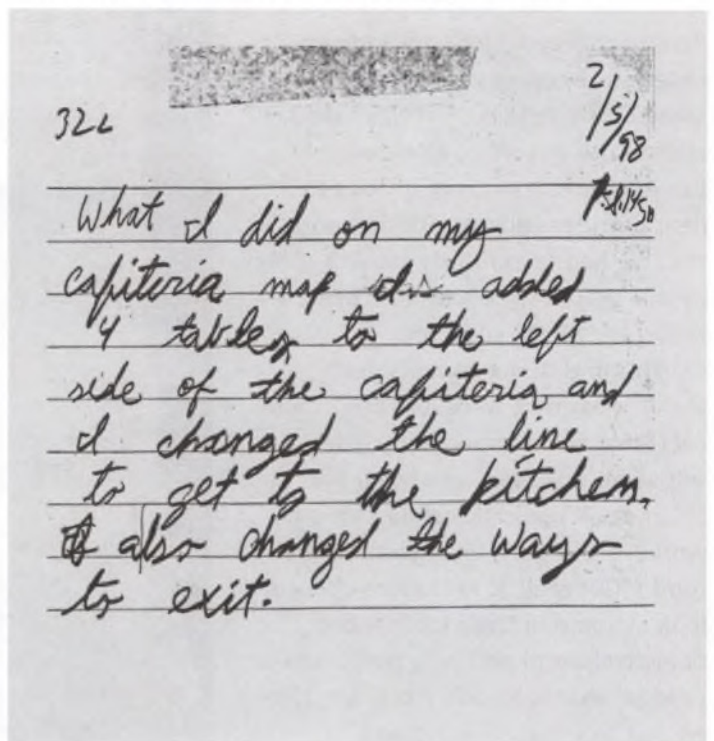 32L
2/5/98
What I did on my
cafiteria map is added
4 tables to the left
side of the cafiteria and
I changed the line
to get to the kitchen.
I also changed the ways
to exit.